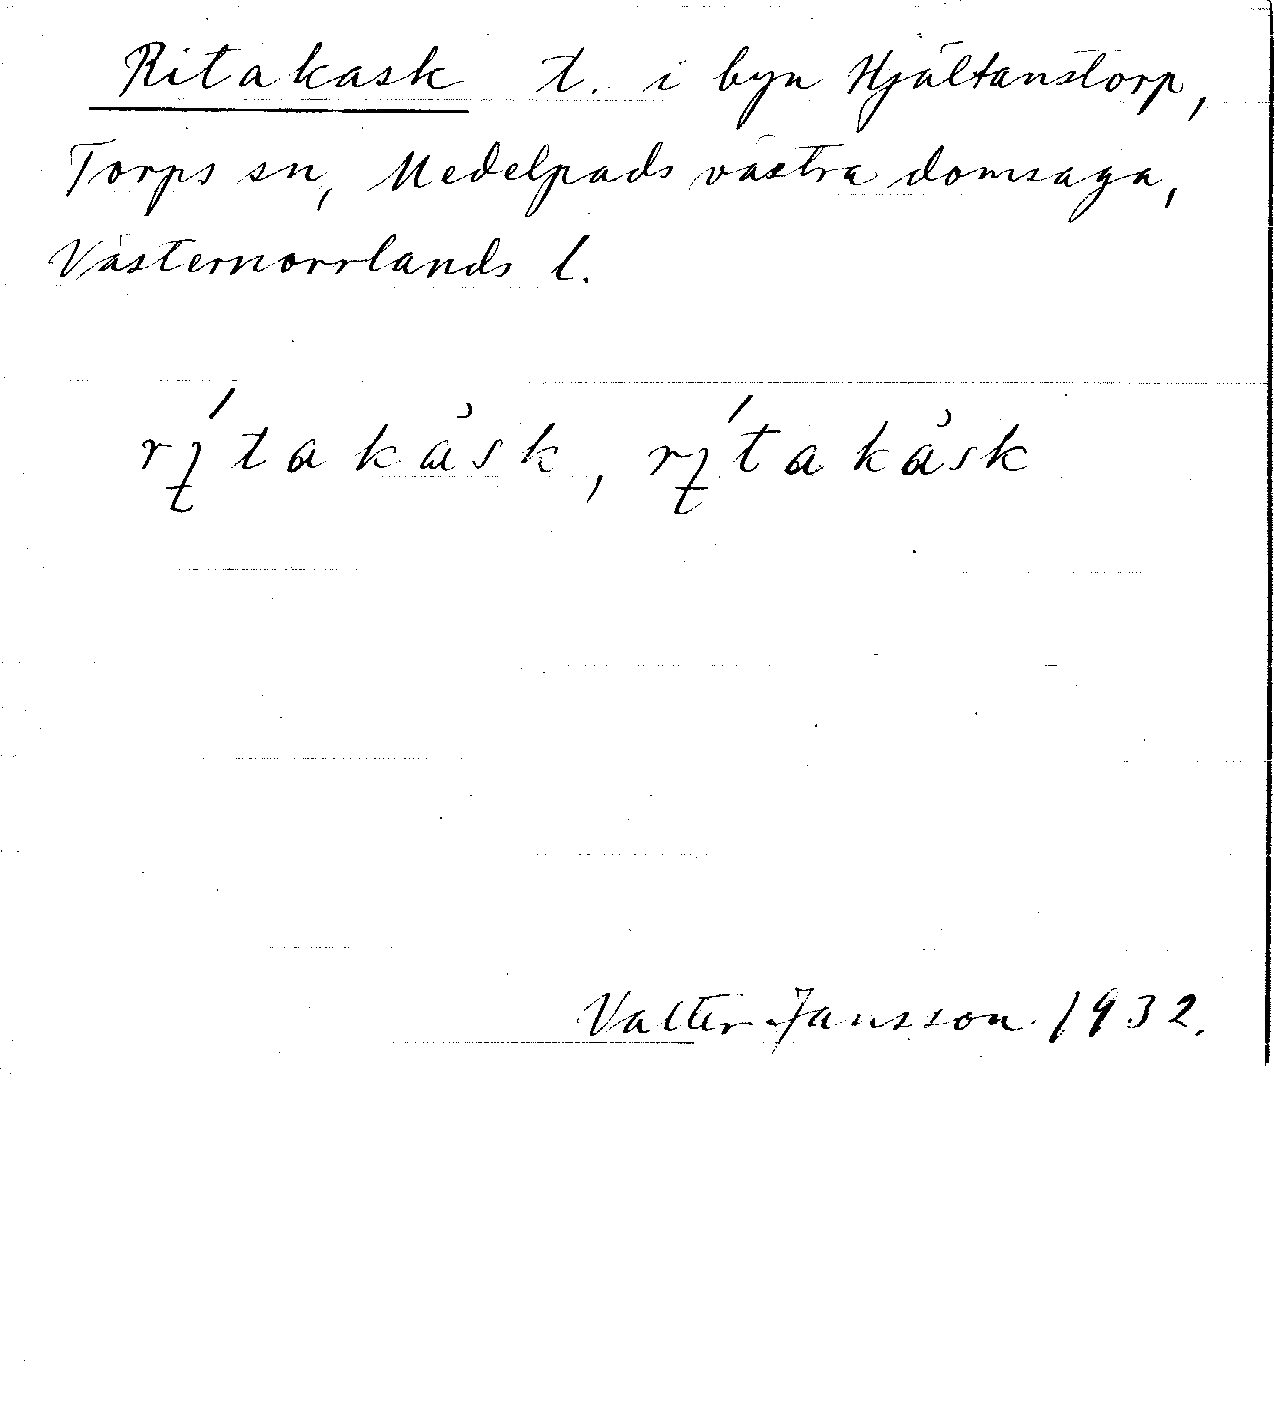 Ritakask t. i byn Hjältanstorp,
Torps sn, Medelpads västra domsaga,
Västernorrlands l.
Valter Jansson 1932.